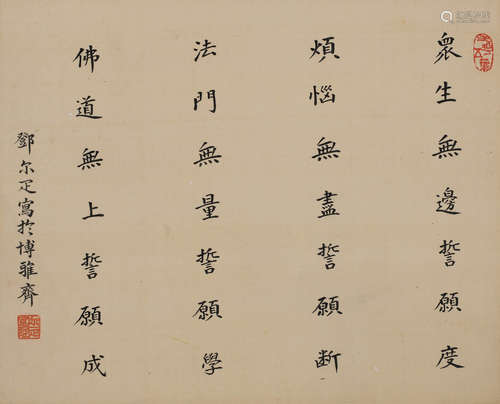 眾生無邊誓願度
煩惱無盡誓願断
法門無量誓願學
佛道無上誓願成
鄧尔疋寫於博雅齊